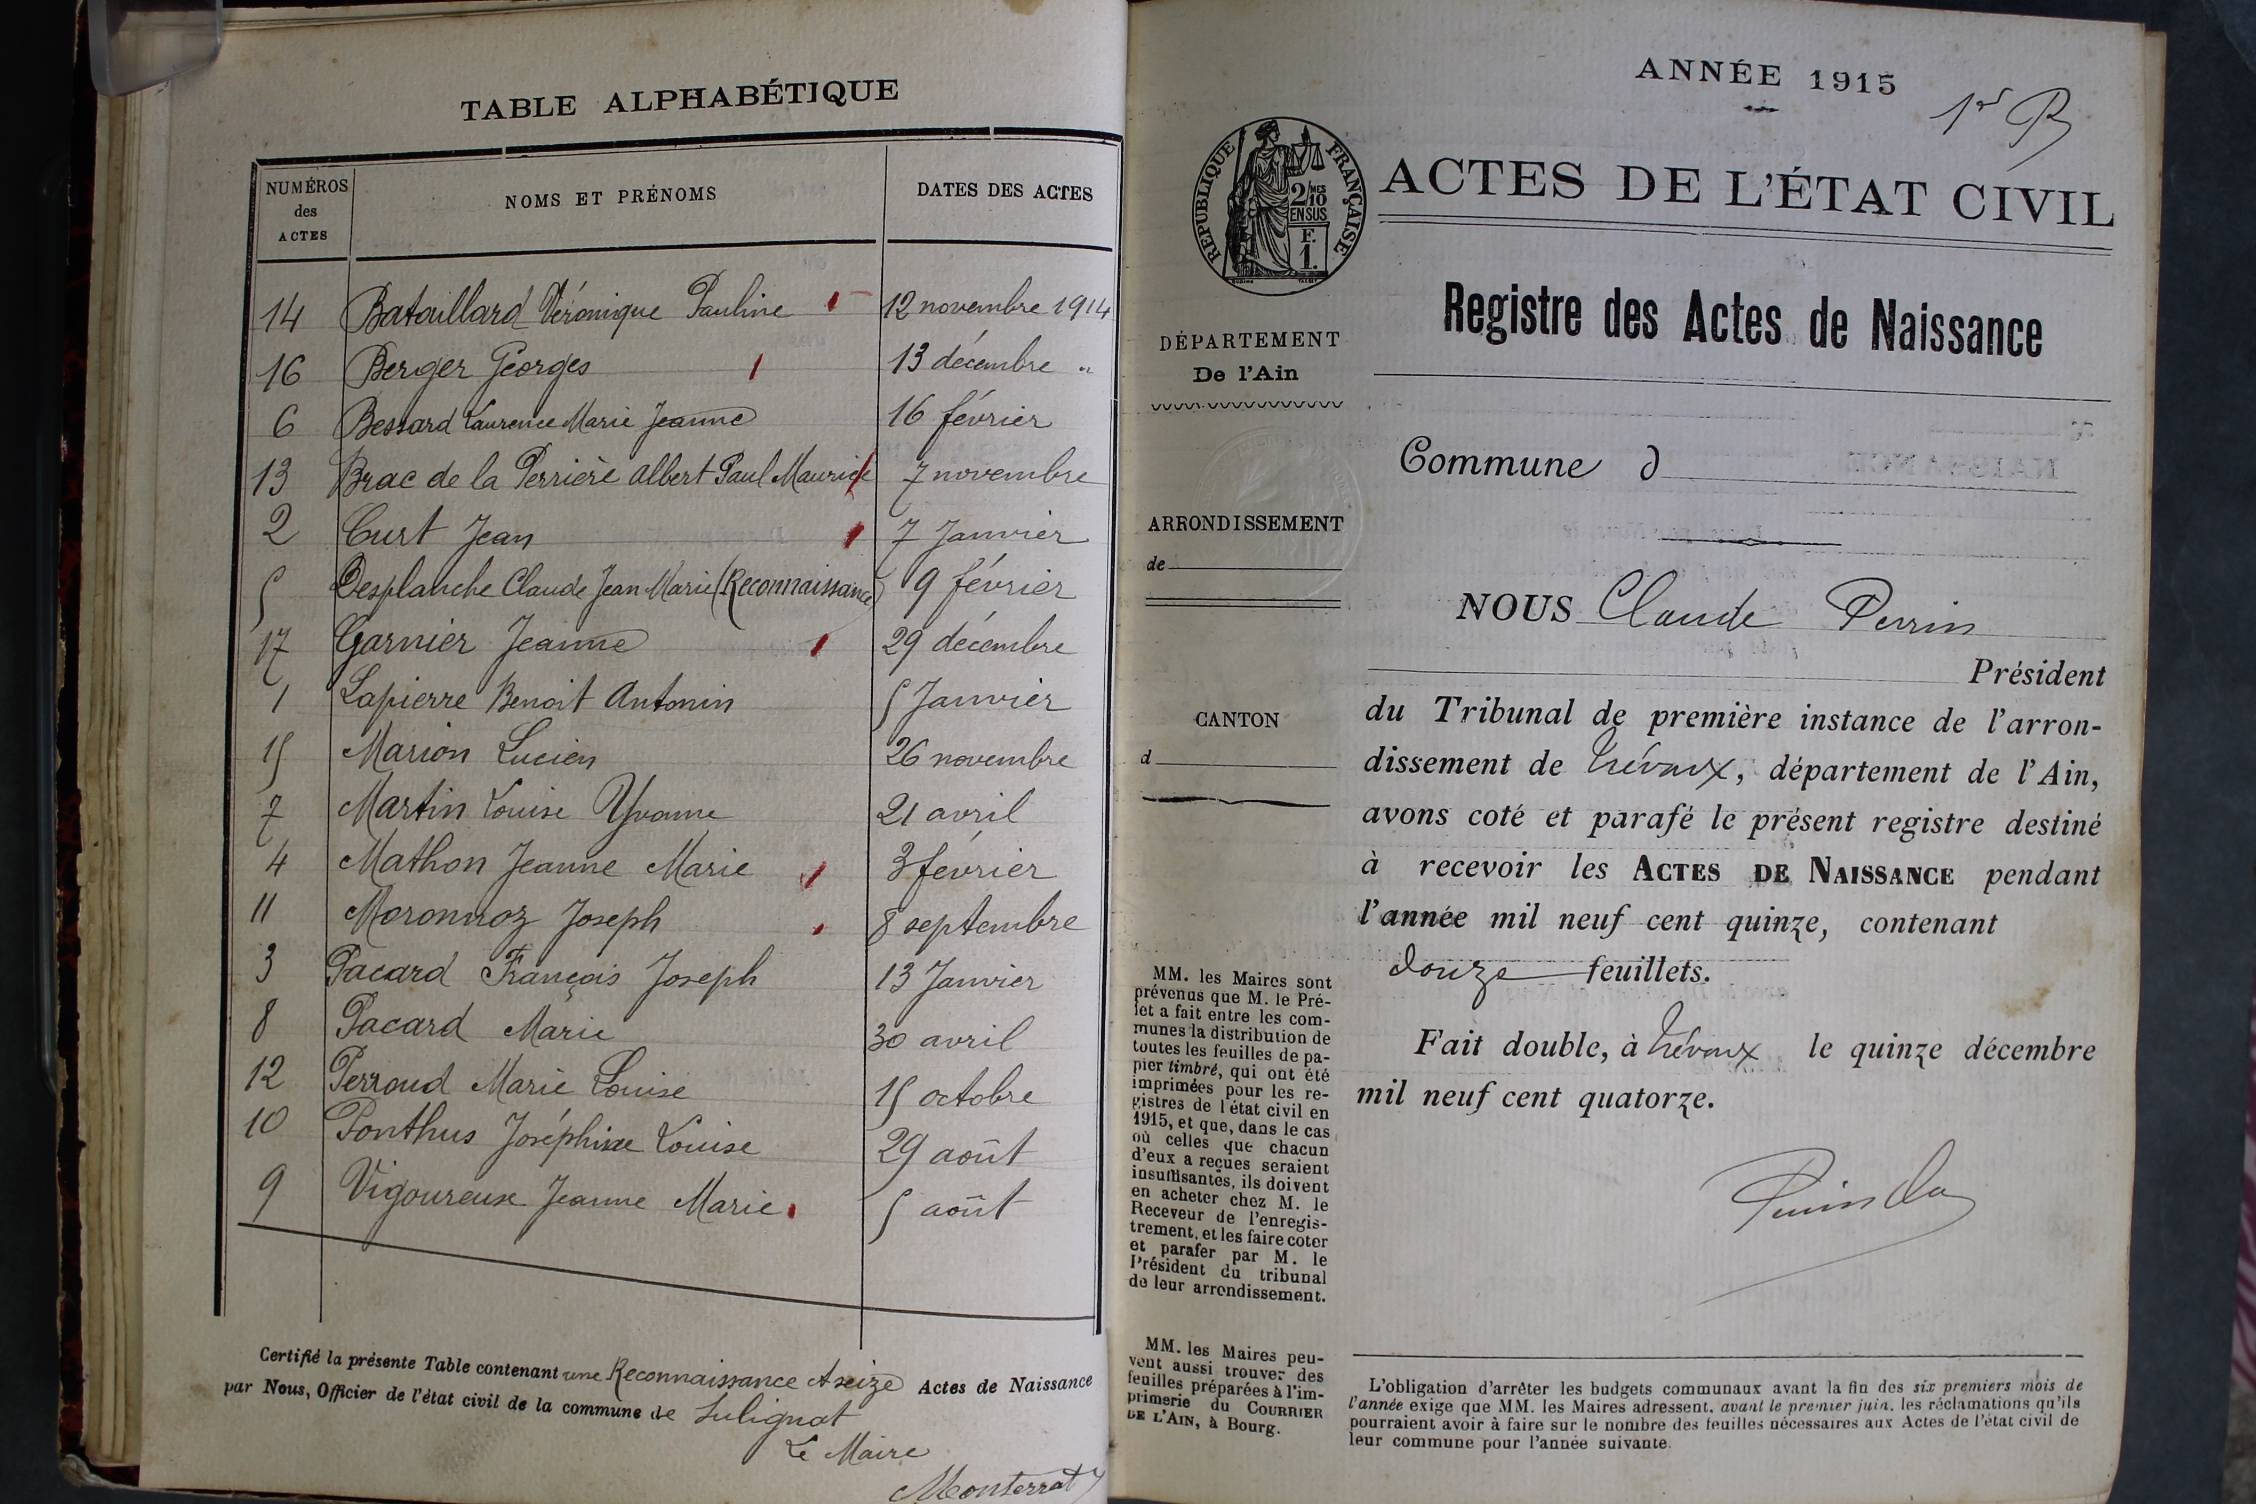 TABLE ALPHABÉTIQUE
NUMÉROS des ACTES NOMS ET PRÉNOMS DATES DES ACTES
14 Bataillard Véronique Pauline 12 novembre 1914
16 Berger Georges 13 décembre "
6 Bessard Laurence Marie Jeanne 16 février
13 Brac de la Perrière Albert Paul Maurice 7 novembre
2 Curt Jean 7 Janvier
5 Desplanche Claude Jean Marie (Reconnaissance) 9 février
17 Garnier Jeanne 29 décembre
1 Lapierre Benoit Antonin 5 Janvier
15 Marion Lucien 26 novembre
7 Martin Louise Yvonne 21 avril
4 Mathon Jeanne Marie 3 février
11 Moronnoz Joseph 8 septembre
3 Pacard François Joseph 13 Janvier
8 Pacard Marie 30 avril
12 Perroud Marie Louise 15 octobre
10 Ponthus Joséphine Louise 29 août
9 Vigoureux Jeanne Marie 5 août
Certifié la présente Table contenant une Reconnaissance & seize Actes de Naissance
par Nous, Officier de l'état civil de la commune de Sulignat
Le Maire
Monterrat
ANNÉE 1915
1er
RÉPUBLIQUE FRANÇAISE
2/10 MES
EN SUS
F.
1.
ACTES DE L'ÉTAT CIVIL
Registre des Actes de Naissance
DÉPARTEMENT
De l'Ain
Commune d
ARRONDISSEMENT
de
CANTON
d
NOUS Claude Perrin
Président
du Tribunal de première instance de l'arron-
dissement de Trévoux, département de l'Ain,
avons coté et parafé le présent registre destiné
à recevoir les ACTES DE NAISSANCE pendant
l'année mil neuf cent quinze, contenant
douze feuillets.
Fait double, à Trévoux le quinze décembre
mil neuf cent quatorze.
MM. les Maires sont
prévenus que M. le Pré-
fet a fait entre les com-
munes la distribution de
toutes les feuilles de pa-
pier timbré, qui ont été
imprimées pour les re-
gistres de l'état civil en
1915, et que, dans le cas
où celles que chacun
d'eux a reçues seraient
insuffisantes, ils doivent
en acheter chez M. le
Receveur de l'enregis-
trement, et les faire coter
et parafer par M. le
Président du tribunal
de leur arrondissement.
MM. les Maires peu-
vent aussi trouver des
feuilles préparées à l'im-
primerie du COURRIER
DE L'AIN, à Bourg.
L'obligation d'arrêter les budgets communaux avant la fin des six premiers mois de
l'année exige que MM. les Maires adressent, avant le premier juin, les réclamations qu'ils
pourraient avoir à faire sur le nombre des feuilles nécessaires aux Actes de l'état civil de
leur commune pour l'année suivante.